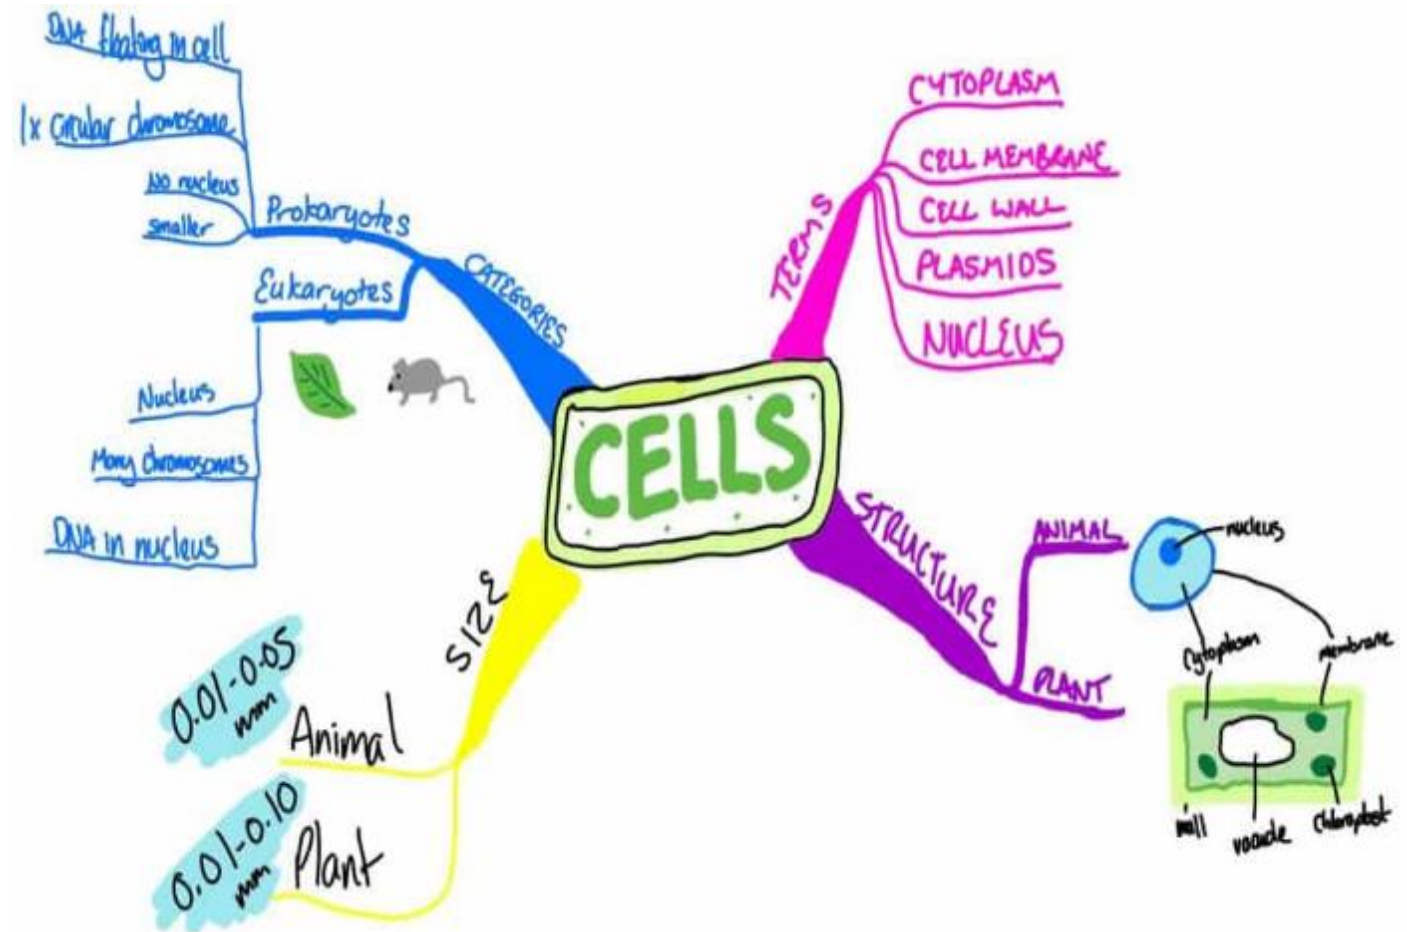 CELLS
CATEGORIES
Prokaryotes
DNA floating in cell
1x circular chromosome
No nucleus
smaller
Eukaryotes
Nucleus
Many chromosomes
DNA in nucleus
TERMS
CYTOPLASM
CELL MEMBRANE
CELL WALL
PLASMIDS
NUCLEUS
STRUCTURE
ANIMAL
nucleus
Cytoplasm
membrane
PLANT
wall
vacuole
Chloroplast
SIZE
Animal
0.01-0.05
mm
Plant
0.01-0.10
mm